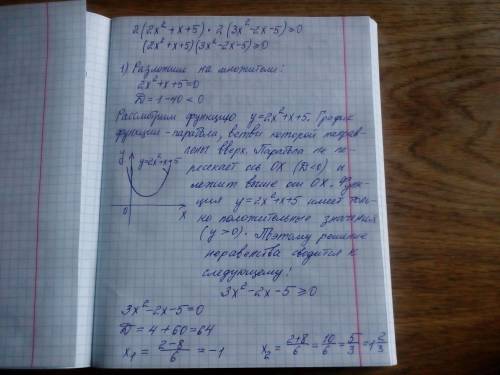 2(2x²+x+5)·2(3x²-2x-5)≥0
(2x²+x+5)(3x²-2x-5)≥0
1) Разложим на множители:
2x²+x+5=0
D=1-40<0
Рассмотрим функцию y=2x²+x+5. График
функции - парабола, ветви которой направ-
лены вверх. Парабола не пе-
ресекает ось OX (D<0) и
лежит выше оси OX. Функ-
ция y=2x²+x+5 имеет толь-
ко положительные значения
(y>0). Поэтому решение
неравенства сводится к
следующему:
y
y=2x²+x+5
0
x
3x²-2x-5≥0
3x²-2x-5=0
D=4+60=64
x₁ = (2-8)/6 = -1 x₂ = (2+8)/6 = 10/6 = 5/3 = 1 2/3